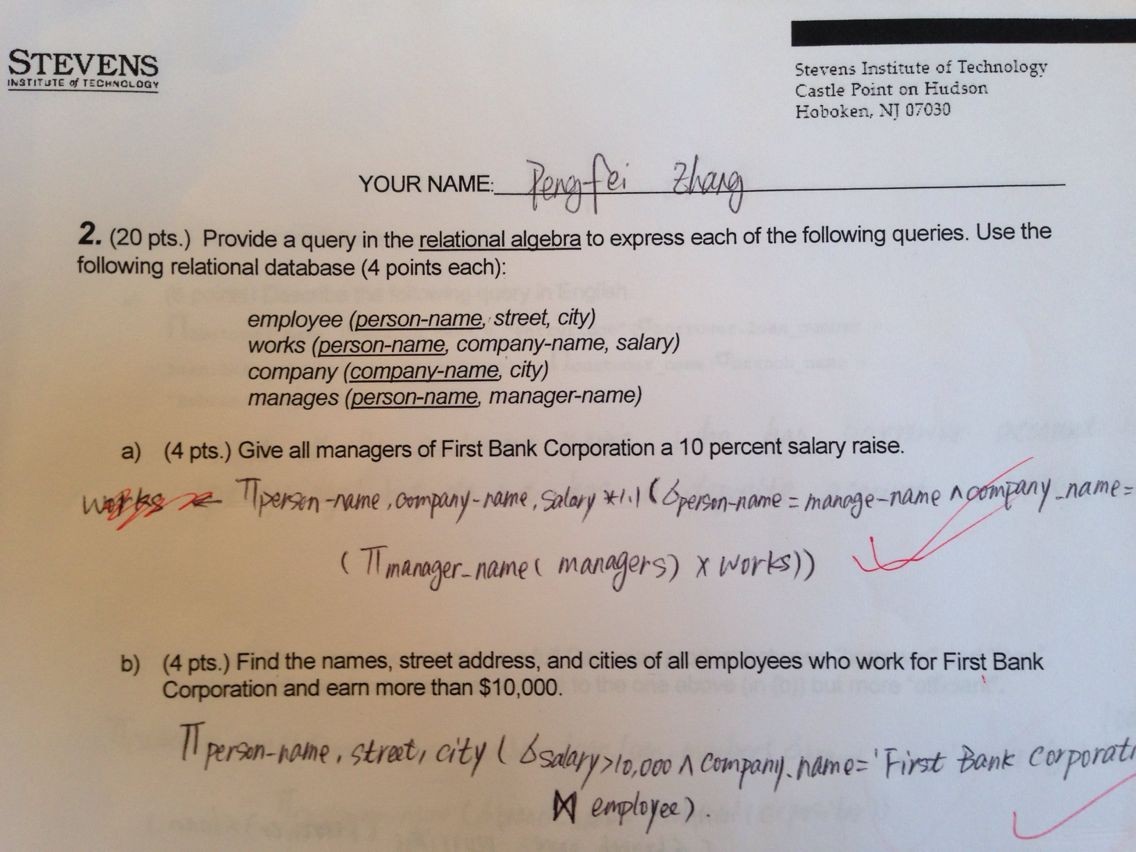 STEVENS
INSTITUTE of TECHNOLOGY
Stevens Institute of Technology
Castle Point on Hudson
Hoboken, NJ 07030
YOUR NAME: Pengfei Zhang
2. (20 pts.) Provide a query in the relational algebra to express each of the following queries. Use the
following relational database (4 points each):
employee (person-name, street, city)
works (person-name, company-name, salary)
company (company-name, city)
manages (person-name, manager-name)
a) (4 pts.) Give all managers of First Bank Corporation a 10 percent salary raise.
works ← Π person-name, company-name, salary *1.1 (σ person-name = manage-name ∧ company_name=
(Π manager_name( managers) x works))
b) (4 pts.) Find the names, street address, and cities of all employees who work for First Bank
Corporation and earn more than $10,000.
Π person-name, street, city (σ salary>10,000 ∧ company.name= 'First Bank Corporati
⋈ employee).